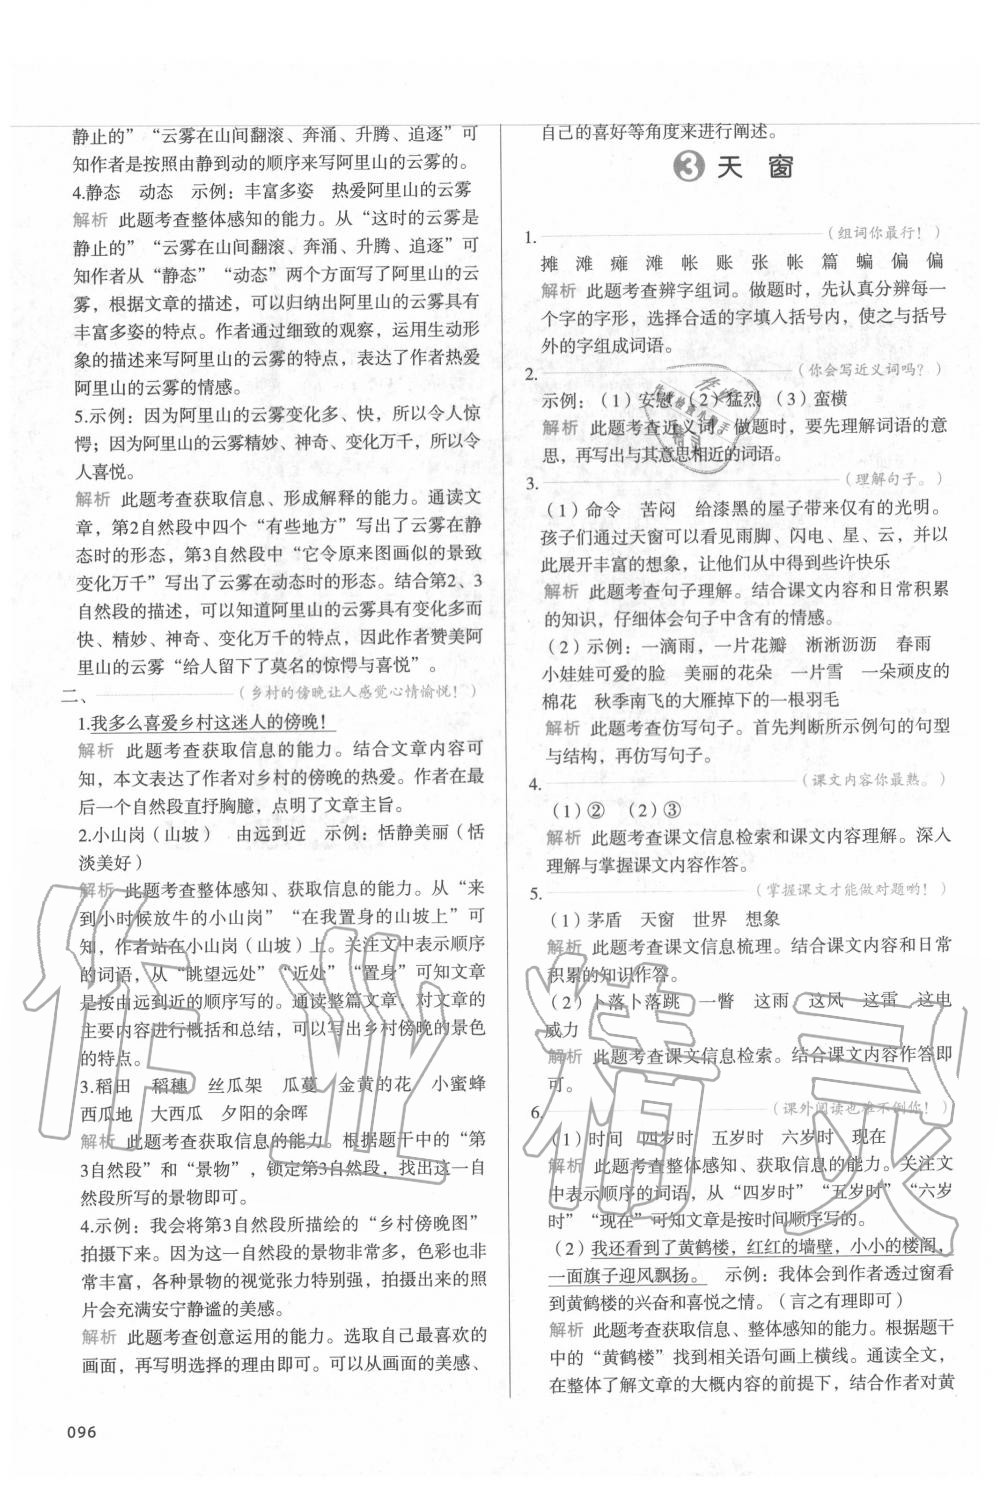 静止的”“云雾在山间翻滚、奔涌、升腾、追逐”可
知作者是按照由静到动的顺序来写阿里山的云雾的。
4.静态　动态　示例：丰富多姿　热爱阿里山的云雾
解析　此题考查整体感知的能力。从“这时的云雾是
静止的”“云雾在山间翻滚、奔涌、升腾、追逐”可
知作者从“静态”“动态”两个方面写了阿里山的云
雾，根据文章的描述，可以归纳出阿里山的云雾具有
丰富多姿的特点。作者通过细致的观察，运用生动形
象的描述来写阿里山的云雾的特点，表达了作者热爱
阿里山的云雾的情感。
5.示例：因为阿里山的云雾变化多、快，所以令人惊
愕；因为阿里山的云雾精妙、神奇、变化万千，所以令
人喜悦。
解析　此题考查获取信息、形成解释的能力。通读文
章，第2自然段中四个“有些地方”写出了云雾在静
态时的形态，第3自然段中“它令原来图画似的景致
变化万千”写出了云雾在动态时的形态。结合第2、3
自然段的描述，可以知道阿里山的云雾具有变化多而
快、精妙、神奇、变化万千的特点，因此作者赞美阿
里山的云雾“给人留下了莫名的惊愕与喜悦”。
二、（乡村的傍晚让人感觉心情愉悦！）
1.我多么喜爱乡村这迷人的傍晚！
解析　此题考查获取信息的能力。结合文章内容可
知，本文表达了作者对乡村的傍晚的热爱。作者在最
后一个自然段直抒胸臆，点明了文章主旨。
2.小山岗（山坡）　由远到近　示例：恬静美丽（恬
淡美好）
解析　此题考查整体感知、获取信息的能力。从“来
到小时候放牛的小山岗”“在我置身的山坡上”可
知，作者站在小山岗（山坡）上。关注文中表示顺序
的词语，从“眺望远处”“近处”“置身”可知文章
是按由远到近的顺序写的。通读整篇文章，对文章的
主要内容进行概括和总结，可以写出乡村傍晚的景色
的特点。
3.稻田　稻穗　丝瓜架　瓜蔓　金黄的花　小蜜蜂
西瓜地　大西瓜　夕阳的余晖
解析　此题考查获取信息的能力。根据题干中的“第
3自然段”和“景物”，锁定第3自然段，找出这一自
然段所写的景物即可。
4.示例：我会将第3自然段所描绘的“乡村傍晚图”
拍摄下来。因为这一自然段的景物非常多，色彩也非
常丰富，各种景物的视觉张力特别强，拍摄出来的照
片会充满安宁静谧的美感。
解析　此题考查创意运用的能力。选取自己最喜欢的
画面，再写明选择的理由即可。可以从画面的美感、
096
自己的喜好等角度来进行阐述。
3 天 窗
1.（组词你最行！）
摊　滩　瘫　滩　帐　账　张　帐　篇　蝙　偏　偏
解析　此题考查辨字组词。做题时，先认真分辨每一
个字的字形，选择合适的字填入括号内，使之与括号
外的字组成词语。
2.（你会写近义词吗？）
示例：（1）安慰（2）猛烈（3）蛮横
解析　此题考查近义词。做题时，要先理解词语的意
思，再写出与其意思相近的词语。
3.（理解句子。）
（1）命令　苦闷　给漆黑的屋子带来仅有的光明。
孩子们通过天窗可以看见雨脚、闪电、星、云，并以
此展开丰富的想象，让他们从中得到些许快乐
解析　此题考查句子理解。结合课文内容和日常积累
的知识，仔细体会句子中含有的情感。
（2）示例：一滴雨，一片花瓣　淅淅沥沥　春雨
小娃娃可爱的脸　美丽的花朵　一片雪　一朵纯白的
棉花　秋季南飞的大雁掉下的一根羽毛
解析　此题考查仿写句子。首先判断所示例句的句型
与结构，再仿写句子。
4.（课文内容你最熟。）
（1）②　（2）③
解析　此题考查课文信息检索和课文内容理解。深入
理解与掌握课文内容作答。
5.（掌握课文才能做对题哟！）
（1）茅盾　天窗　世界　想象
解析　此题考查课文信息梳理。结合课文内容和日常
积累的知识作答。
（2）卜落卜落跳　一瞥　这雨　这风　这雷　这电
威力
解析　此题考查课文信息检索。结合课文内容作答即
可。
6.（课外阅读也难不倒你！）
（1）时间　四岁时　五岁时　六岁时　现在
解析　此题考查整体感知、获取信息的能力。关注文
中表示顺序的词语，从“四岁时”“五岁时”“六岁
时”“现在”可知文章是按时间顺序写的。
（2）我还看到了黄鹤楼，红红的墙壁，小小的楼阁，
一面旗子迎风飘扬。　示例：我体会到作者透过窗看
到黄鹤楼的兴奋和喜悦之情。（言之有理即可）
解析　此题考查获取信息、整体感知的能力。根据题干
中的“黄鹤楼”找到相关语句画上横线。通读全文，
在整体了解文章的大概内容的前提下，结合作者对黄
作业精灵